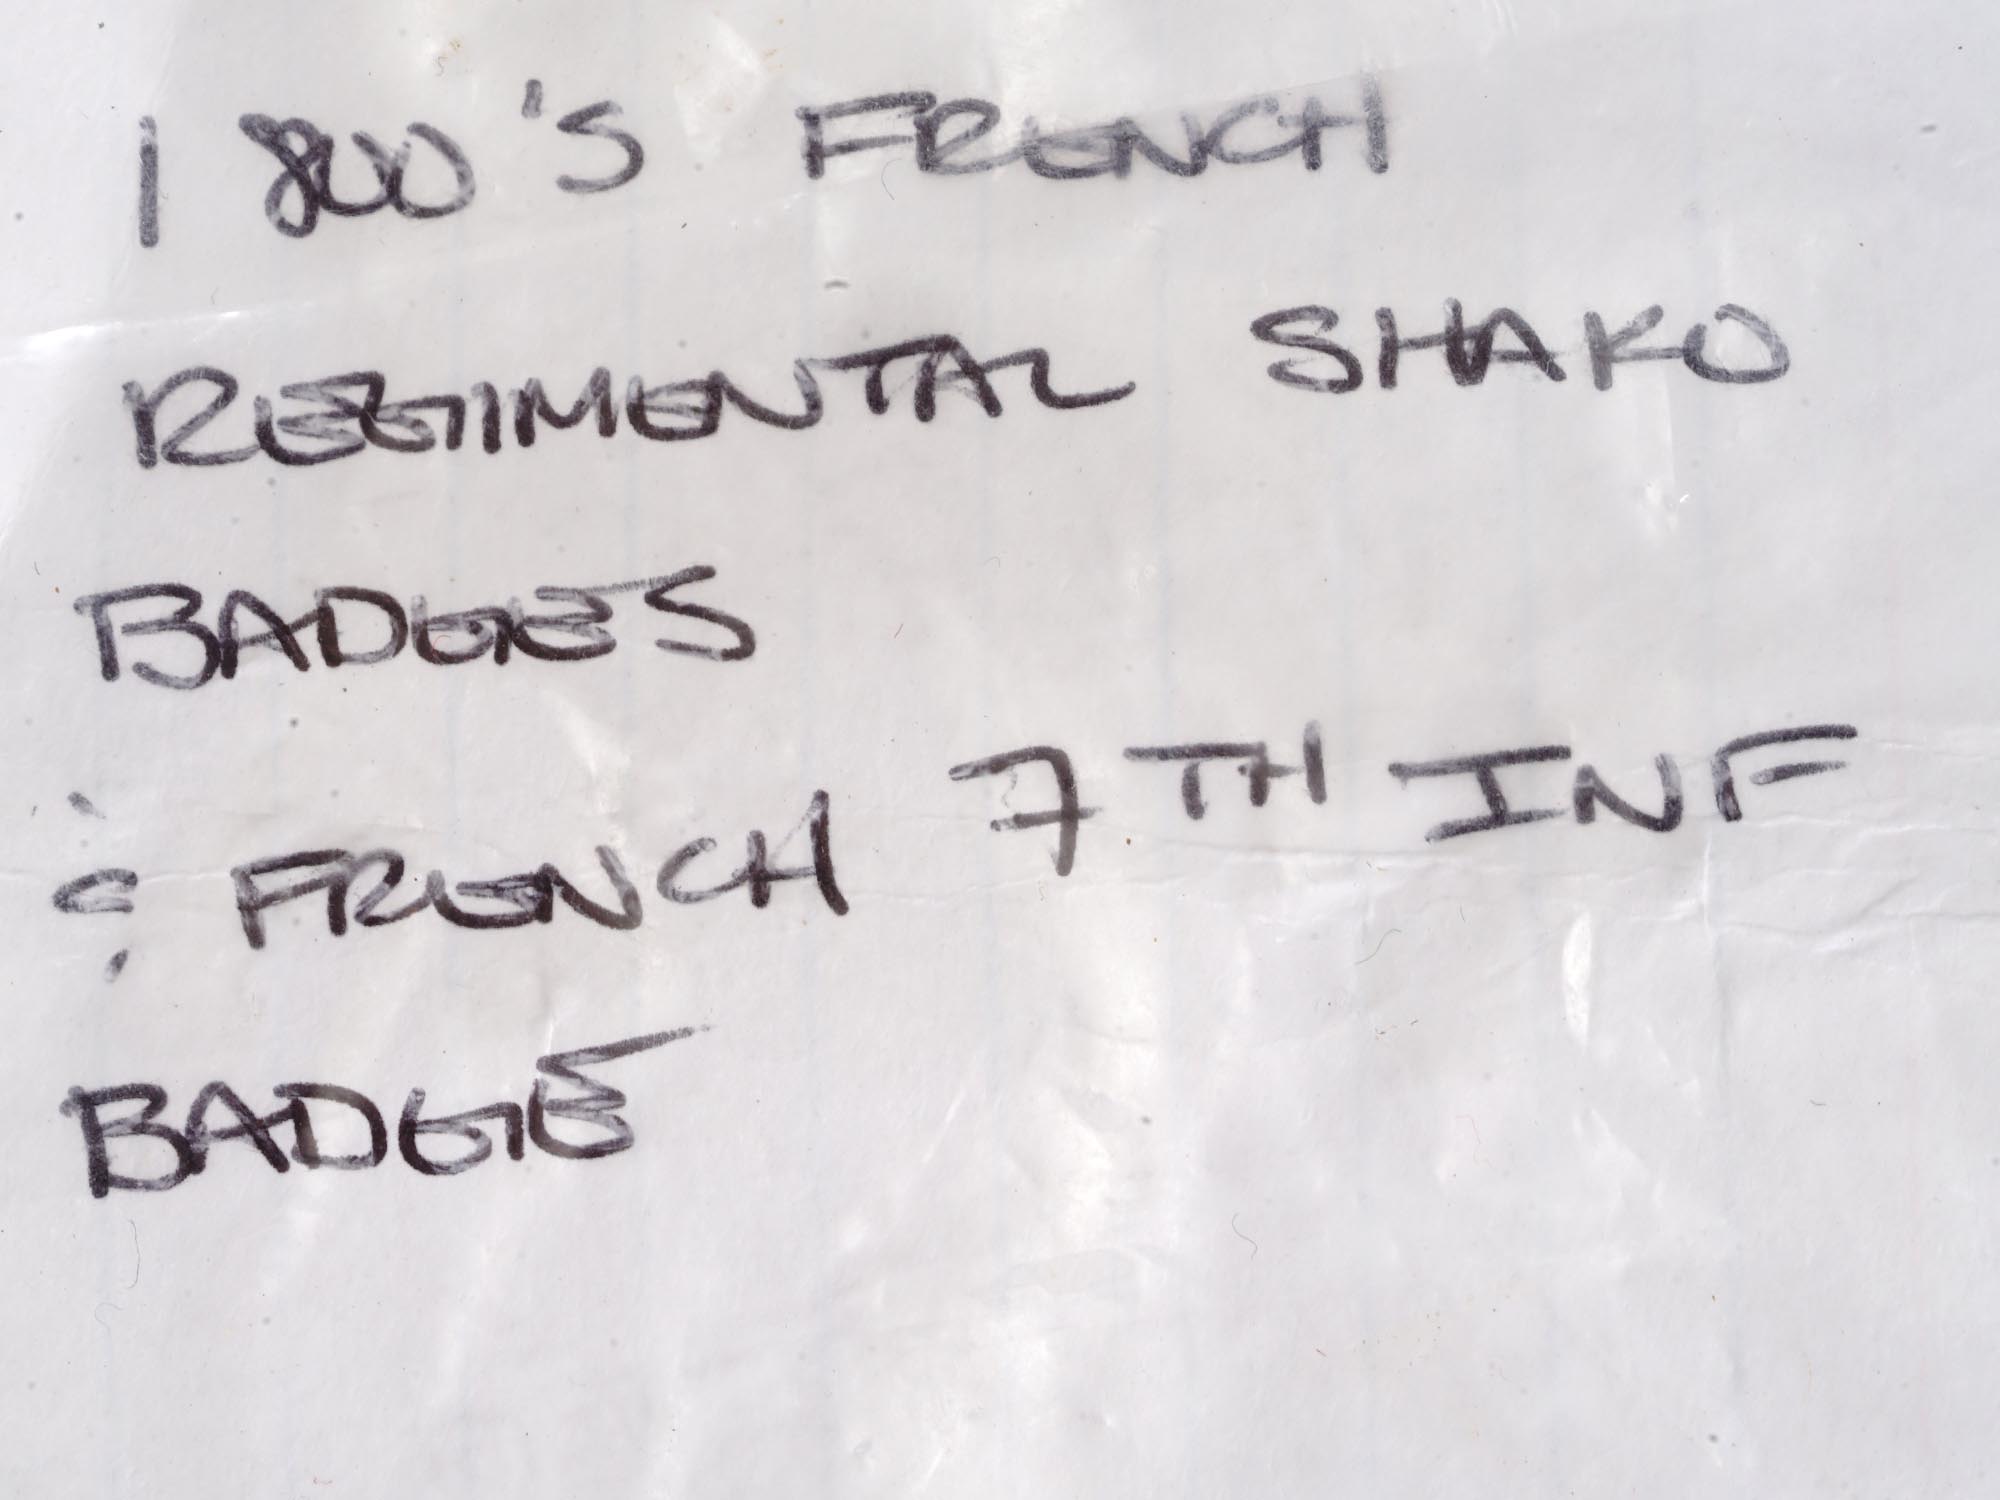 1800'S FRENCH
REGIMENTAL SHAKO
BADGES
& FRENCH 7TH INF
BADGE